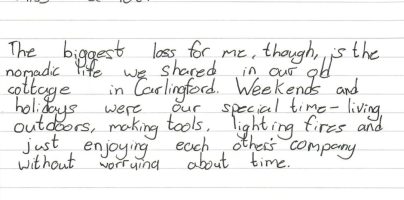 The biggest loss for me, though, is the
nomadic life we shared in our old
cottage in Carlingford. Weekends and
holidays were our special time - living
outdoors, making tools, lighting fires and
just enjoying each other's company
without worrying about time.